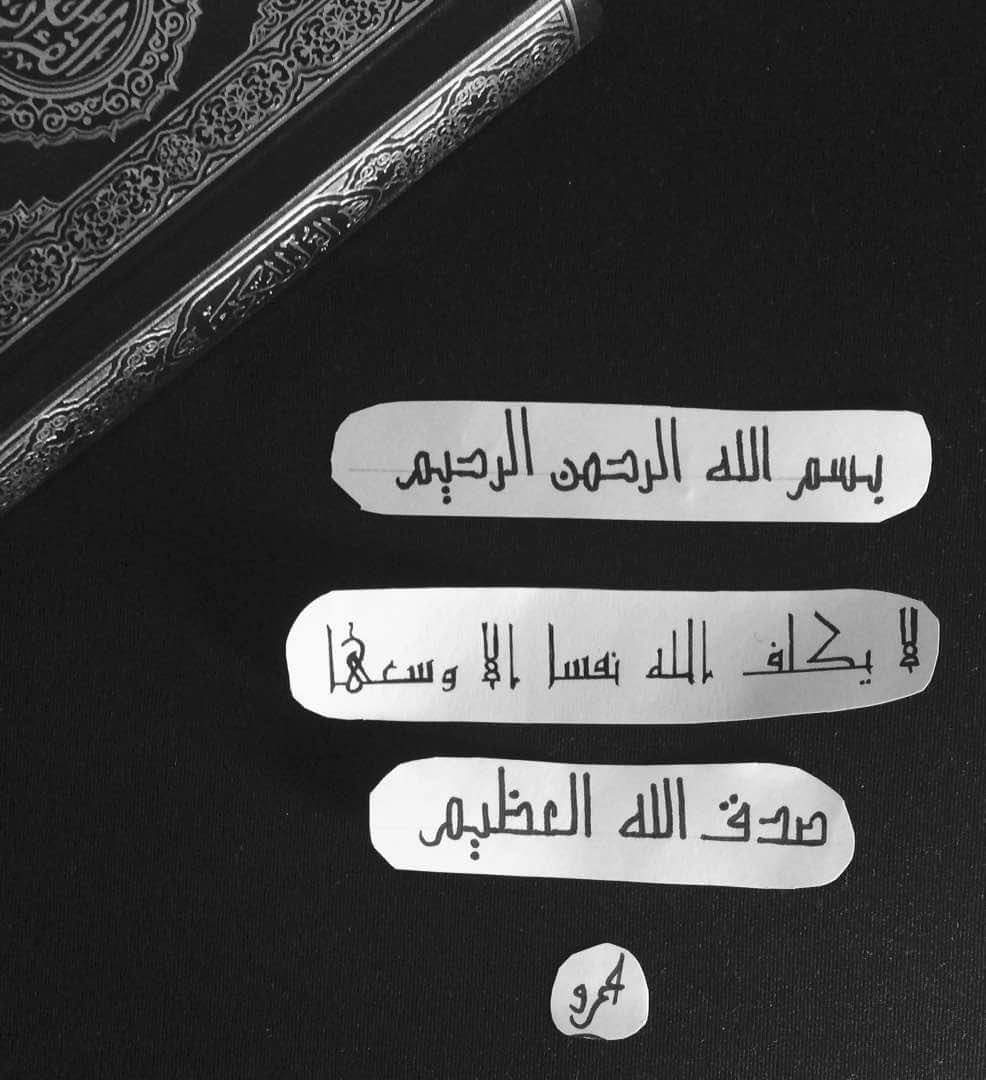 القرآن الكريم
بسم الله الرحمن الرحيم
لا يكلف الله نفسا إلا وسعها
صدق الله العظيم
عمرو